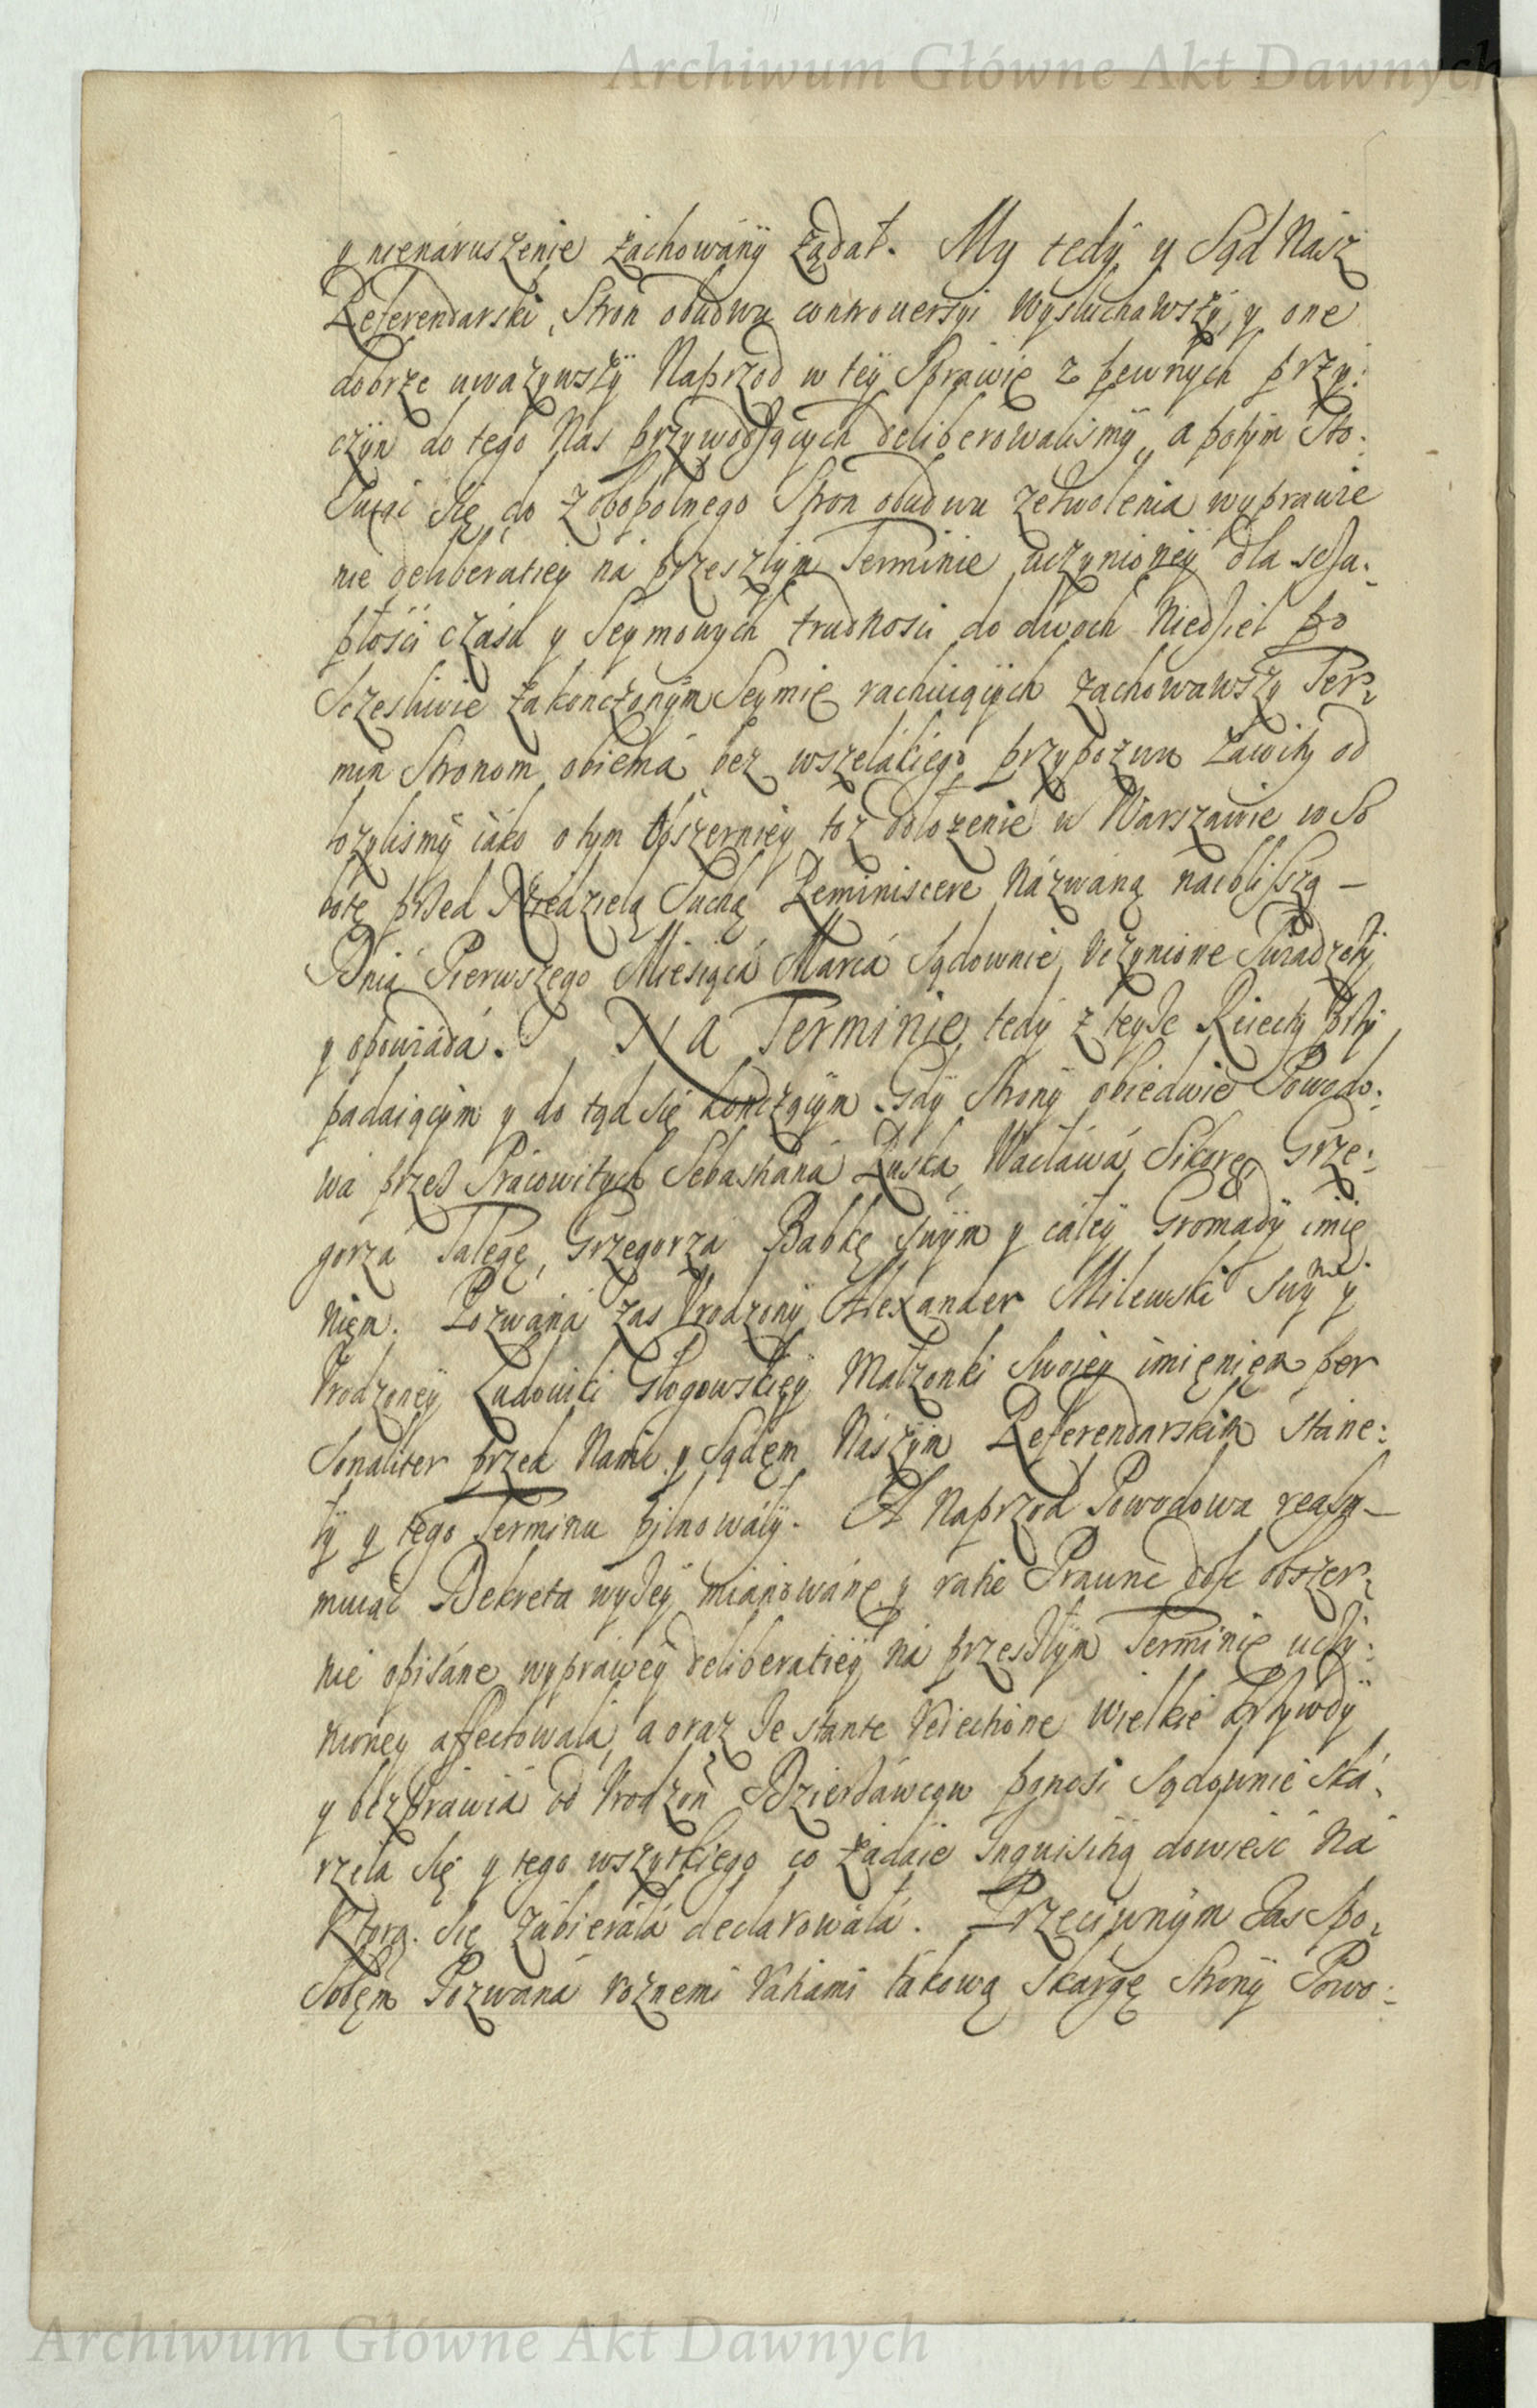 Archiwum Główne Akt Dawnych
y nienáruszenie záchowány żądał. My tedy y Sąd Nász
Referendarski, Stron obudwu controuersyi wysłuchawszy, y one
dobrze uważywszy Naprzod w tey Sprawie z pewnych przy:
czyn do tego Nas przywodzących deliberowalismy, a potym sto:
suiąc się do zobopolnego Stron obudwu zezwolenia wyprawie
nie deliberatiey ná przeszłym Terminie uczynioney dla szczu:
płości czásu y Seymowych trudnosci do dwoch Niedziel po
sczesliwie zakonczonym Seymie rachuiących zachowawszy Ter:
min Stronom obiemá bez wszelákiego przypozwu zawity od
łozylismy iáko o tym obszerniey toż odłożenie w Warszawie w So
botę przed Niedzielą Suchą Reminiscere názwáną naiblisszą –
Dniá Pierwszego Miesiącá Marcá Sądownie uczynione Swiadczy
y opowiáda. Na Terminie tedy z teyże Rzeczy przy
padaiącym y do tąd się kończącym Gdy Strony obiedwie Powodo:
wa przez Prácowitych Sebastianá Łuská, Wacłáwá Sikorę, Grze:
gorzá Sálegę, Grzegorzá Babkę swym y cáłey Gromády imię
niem. Pozwána zas Urodzony Alexander Milewski swym y
Urodzoney Ludowiki Głogowskiey Małzonki Swoiey imięniem per
sonaliter przed Nami y Sądem Nászym Referendarskim stáne:
ły y tego Terminu pilnowáły. A Naprzod Powodowa reasu–
muiąc Dekreta wyżey miánowáne y ratie Prawne dość obszer:
nie opisáne wypráwey deliberatiey ná przeszłym Terminie uczy:
nioney affectowała, a oraz że stante wielkie krzywdy
y bezpráwiá od Urodzon Dzierżáwcow ponosi Sądownie ská:
rzeła się y tego wszytkiego co żádáie Inquisitią dowieść Ná
Ktorą się zábieráłá declarowáłá. Przeciwnym zas spo:
sobem Pozwána roznemi rátiámi tákową skargę Strony Powo:
Archiwum Główne Akt Dawnych